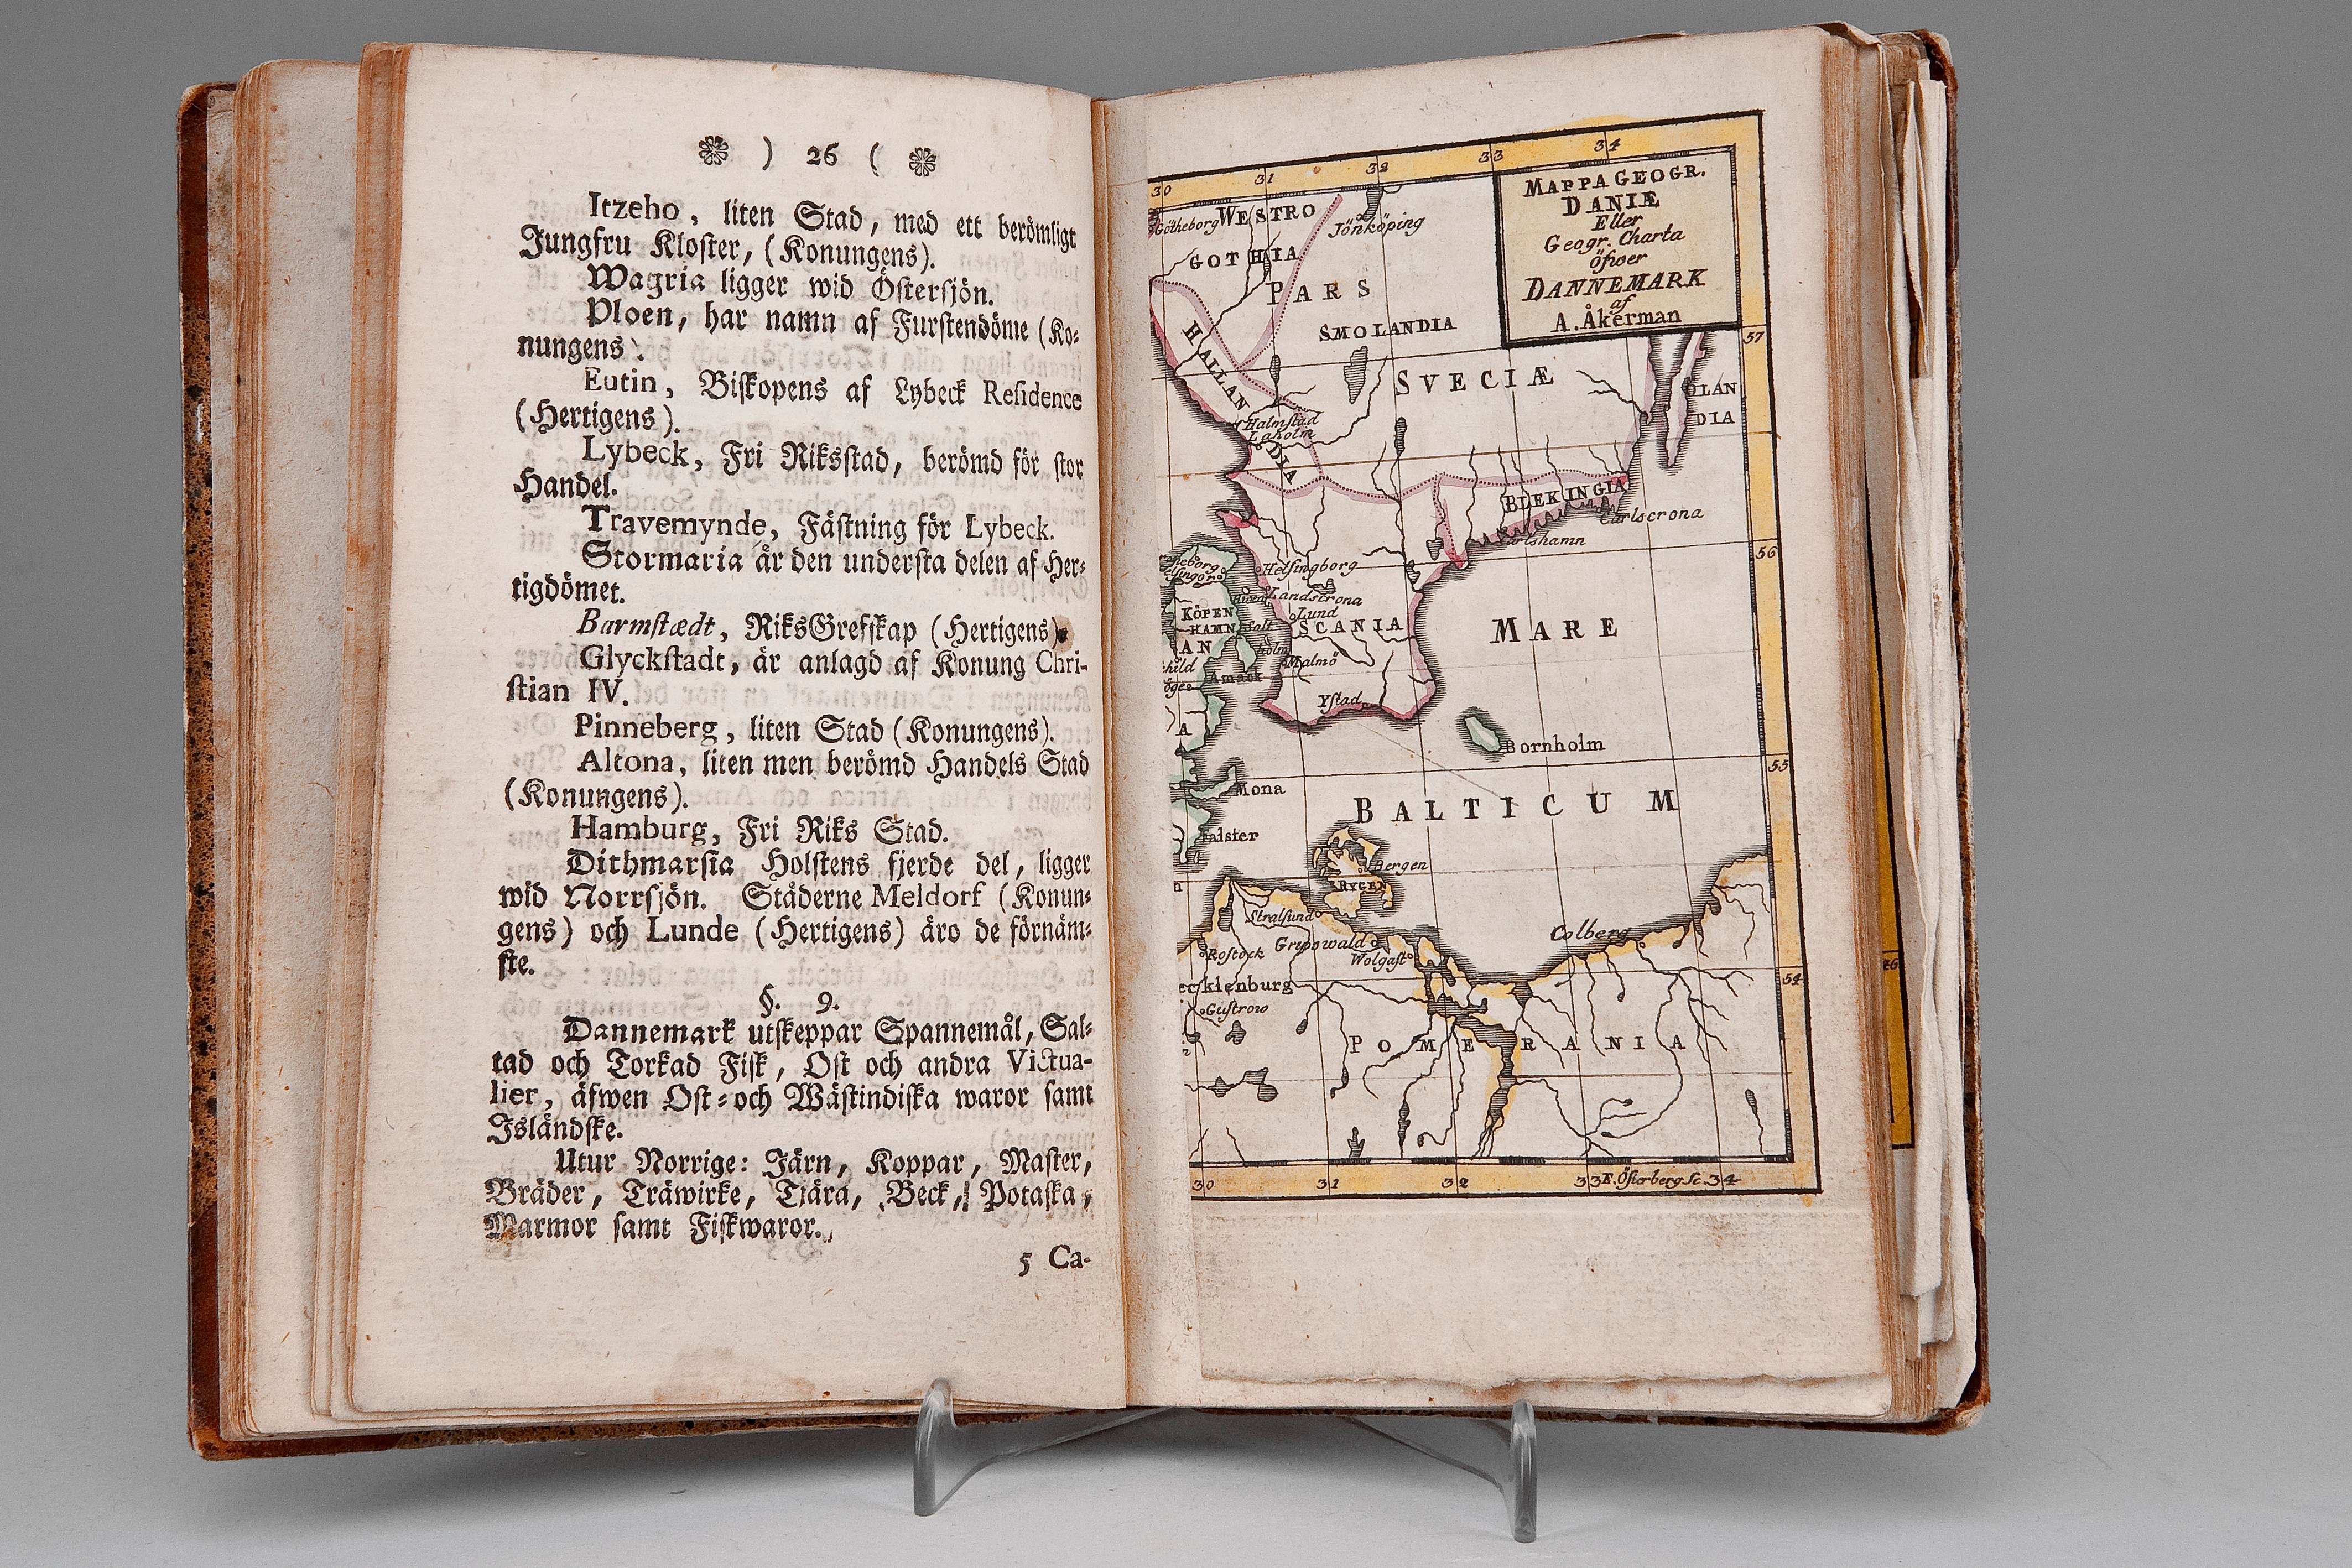 ) 26 (
Itzeho, liten Stad, med ett berömligt
Jungfru Kloster, (Konungens).
Wagria ligger wid Östersjön.
Ploen, har namn af Furstendöme (Ko-
nungens).
Eutin, Biskopens af Lybeck Residence
(Hertigens).
Lybeck, Fri Riksstad, berömd för stor
Handel.
Travemynde, Fästning för Lybeck.
Stormaria är den understa delen af Her-
tigdömet.
Barmstædt, RiksGrefskap (Hertigens)
Glyckstadt, är anlagd af Konung Chri-
stian IV.
Pinneberg, liten Stad (Konungens).
Altona, liten men berömd Handels Stad
(Konungens).
Hamburg, Fri Riks Stad.
Dithmarsia Holstens fjerde del, ligger
wid Norrsjön. Städerne Meldorf (Konun-
gens) och Lunde (Hertigens) äro de förnäm-
ste.
§. 9.
Dannemark utskeppar Spannemål, Sal-
tad och Torkad Fisk, Ost och andra Victua-
lier, äfwen Ost-och Wästindiska waror samt
Isländske.
Utur Norrige: Järn, Koppar, Master,
Bräder, Träwirke, Tjära, Beck, Potaska,
Marmor samt Fiskwaror.
5 Ca-
30 31 32 33 34
MAPPA GEOGR.
DANIÆ
Eller
Geogr. Charta
öfwer
DANNEMARK
af
A. Åkerman
Götheborg
WESTRO
GOTHIA
Jönköping
PARS
SMOLANDIA
SVECIÆ
HALLAN
DIA
Halmstad
Laholm
ÖLAN
DIA
57
BLEKINGIA
Carlscrona
Carlshamn
56
Helsingborg
Landscrona
Lund
SCANIA
KÖPEN
HAMN
AN
Salt
holm
Malmö
Amack
Ystad
MARE
Bornholm
A
55
Mona
BALTICUM
Falster
Bergen
RYGEN
Stralsund
Colberg
Rostock
Gripswald
Wolgast
54
ecklenburg
Gustrow
POMERANIA
30 31 32 33 E. Österberg Sc. 34